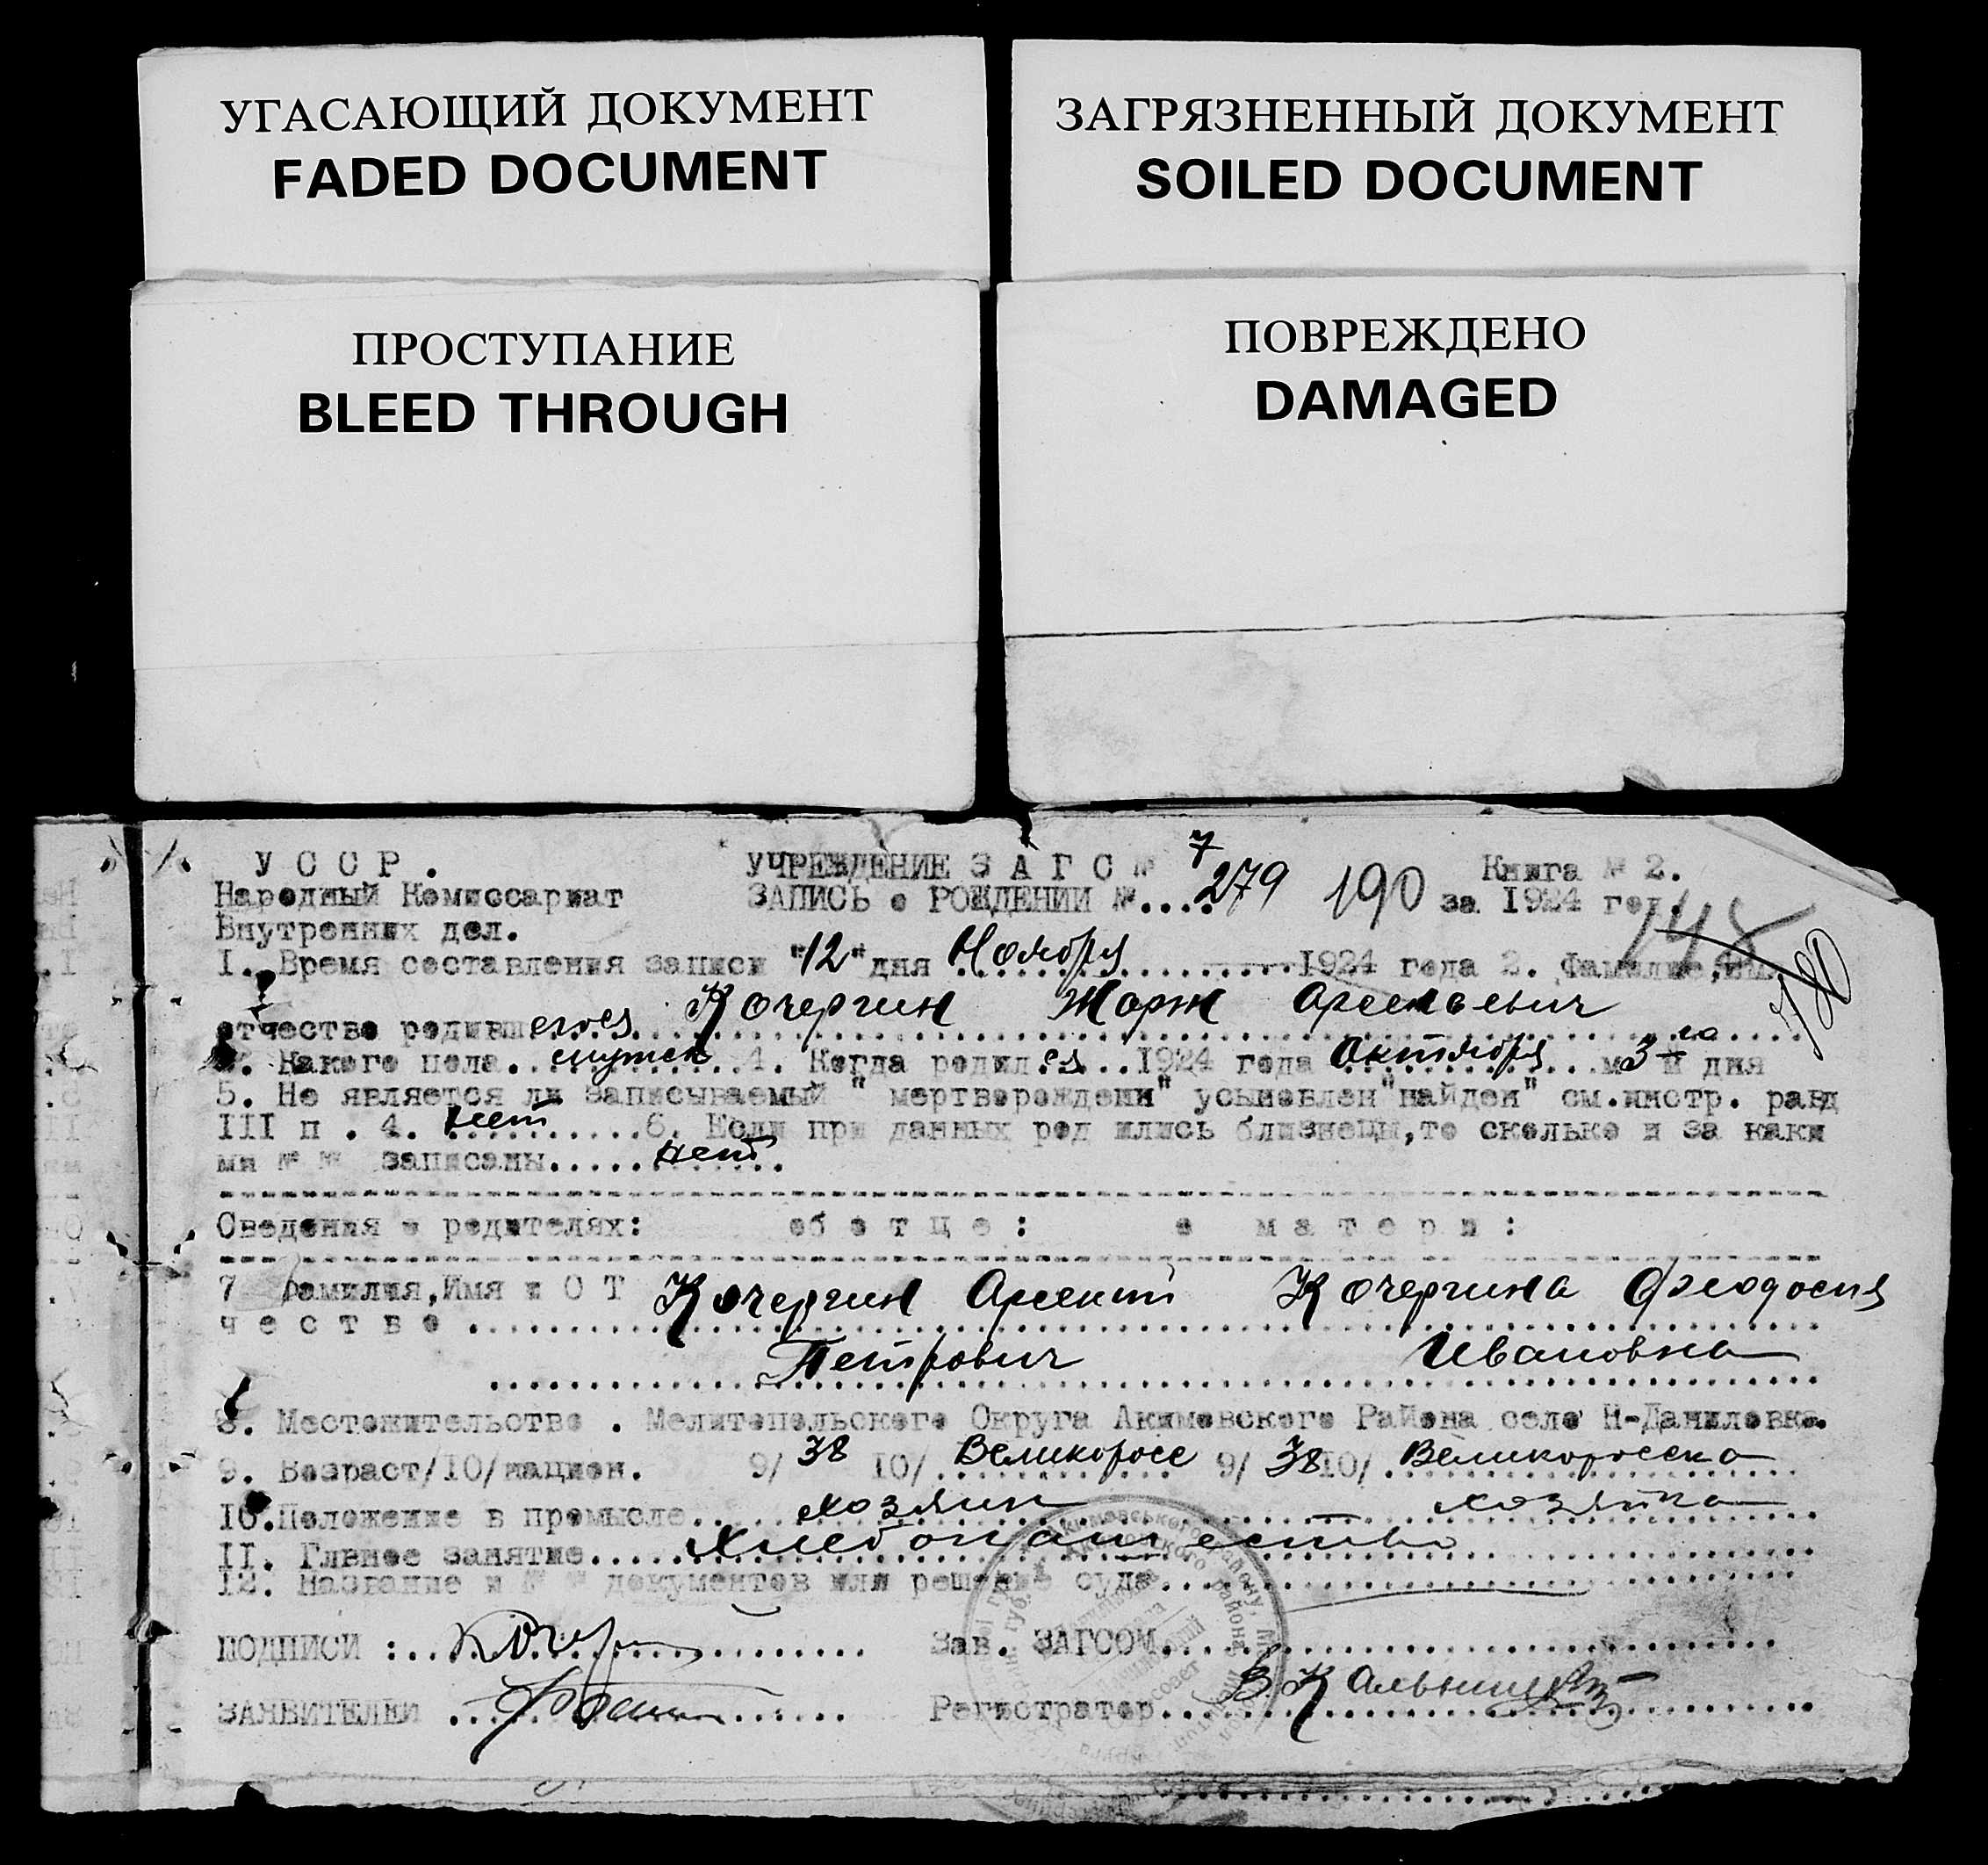 УГАСАЮЩИЙ ДОКУМЕНТ
FADED DOCUMENT
ЗАГРЯЗНЕННЫЙ ДОКУМЕНТ
SOILED DOCUMENT
ПРОСТУПАНИЕ
BLEED THROUGH
ПОВРЕЖДЕНО
DAMAGED
У С С Р . УЧРЕЖДЕНИЕ З А Г С № 7 Книга № 2.
Народный Комиссариат ЗАПИСЬ о РОЖДЕНИИ №.... 279 190 за 1924 год.
Внутренних дел. 148 180
I. Время составления записи "12" дня Ноября 1924 года 2. Фамилие, имя
отчество родившегося Кочергин Жорж Арсентьевич
3. Какого пола. мужск 4. Когда родился...1924 года Октября м 3-го и дня
5. Не является ли записываемый "мертворождени" усыновлен "найден" см.инстр. разд
III п . 4. нет 6. Если при данных род ились близнецы,то сколько и за каки
ми № № записаны..... нет
Сведения о родителях: об о т ц е : о м а т е р и :
7 Фамилия,Имя и О Т Кочергин Арсентий Кочергина Феодосия
ч е с т в о
Петрович Ивановна
8. Местожительство . Мелитопольского Округа Акимовского Района село Н-Даниловка.
9. Возраст/10/национ. 9/ 38 10/ Великоросс 9/ 38 10/ Великоросска
10.Положение в промысле хозяин хозяйка
II. Главное занятие Хлебопашество
12. Название и № № документов или решение суда
ПОДПИСИ : Зав. ЗАГСОМ
ЗАЯВИТЕЛЕЙ Регистратор В. Кальницкий